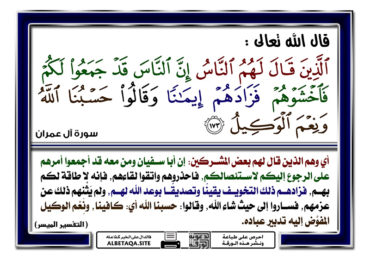 قال الله تعالى :
ٱلَّذِينَ قَالَ لَهُمُ ٱلنَّاسُ إِنَّ ٱلنَّاسَ قَدْ جَمَعُوا۟ لَكُمْ
فَٱخْشَوْهُمْ فَزَادَهُمْ إِيمَٰنًا وَقَالُوا۟ حَسْبُنَا ٱللَّهُ
وَنِعْمَ ٱلْوَكِيلُ ١٧٣
سورة آل عمران
أي وهم الذين قال لهم بعض المشركين: إن أبا سفيان ومن معه قد أجمعوا أمرهم
على الرجوع إليكم لاستئصالكم, فاحذروهم واتقوا لقاءهم, فإنه لا طاقة لكم
بهم, فزادهم ذلك التخويف يقينًا وتصديقًا بوعد الله لهم, ولم يَثْنهم ذلك عن
عزمهم, فساروا إلى حيث شاء الله, وقالوا: حسبنا الله أي: كافينا, ونعم الوكيل
المفوَّض إليه تدبير عباده.
(التفسير الميسر)
ALBETAQA.SITE
احرص على طباعة
ونشر هذه الورقة